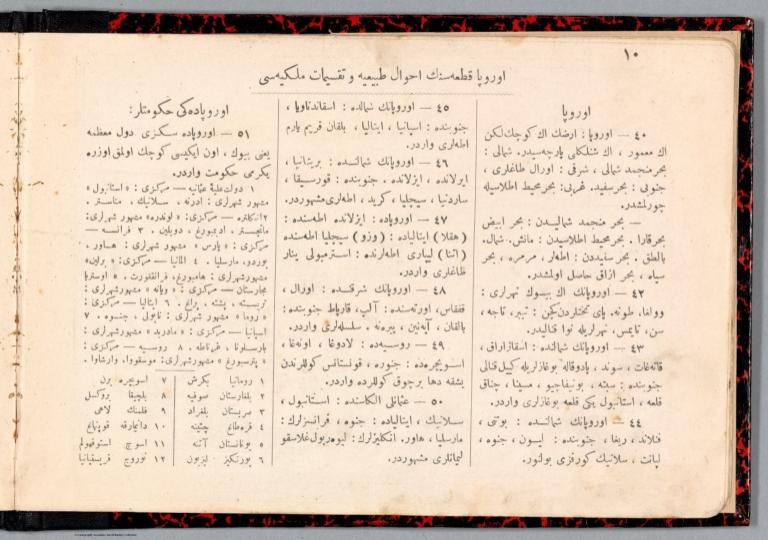 ١٠
اوروپا قطعه‌سنك احوال طبیعیه و تقسیمات ملكیه‌سی
اوروپا
٤٠ — اوروپا : ارضك اك كوچك لكن
اك معمور ، اك شنلكلی پارچه‌سیدر. شمالی :
بحر منجمد شمالی ، شرقی : اورال طاغلری ،
جنوبی : بحر سفید. غربی : بحر محیط اطلاسیله
چورلشدر.
— بحر منجمد شمالیدن : بحر ابیض
بحر قارا . بحر محیط اطلاسیدن : مانش. شمال.
بالطق . بحر سفیددن : اطه‌لر ، مرمره ، بحر
سیاه ، بحر ازاق حاصل اولمشدر.
٤٢ — اوروپانك اك بیوك نهرلری :
وولغا، طونه. پای تختلردن كچن : تیبر، تاجه ،
سن، تایمس. نهرلریله نوا قنالیدر.
٤٣ — اوروپانك شمالنده : اسقاژراق ،
قاته‌غات ، سوند ، پادوقاله بوغازلریله كییل قنالی
جنوبنده : سبته ، بونیفاچیو ، مسینا ، چناق
قلعه ، استانبول یكی قلعه بوغازلری واردر.
٤٤ — اوروپانك شمالنده : بوتنی ،
فنلاند، ریغا ، جنوبنده : لیسون ، جنوه ،
لپانت ، سلانیك كورفزی بولنور.
٤٥ — اوروپانك شمالنده : اسقاندناویا ،
جنوبنده : اسپانیا ، ایتالیا ، بلقان قریم یارم
اطه‌لری واردر.
٤٦ — اوروپانك شمالنده : بریتانیا ،
ایرلانده ، ایزلانده . جنوبنده : قورسیقا ،
ساردنیا ، سیجلیا ، كرید ، اطه‌لری مشهوردر.
٤٧ — اوروپاده : ایزلانده اطه‌سنده :
( هقلا ) ایتالیاده : ( وزو ) سیجلیا اطه‌سنده
( اتنا ) لیپاری اطه‌لرنده : استرمبولی ینار
طاغلری واردر.
٤٨ — اوروپانك شرقنده : اورال ،
قفقاس، اورته‌سنده : آلپ، قارپاط جنوبنده :
بالقان ، آپه‌نین ، پیره‌نه . سلسله‌لری واردر.
٤٩ — روسیه‌ده : لادوغا ، اونه‌غا ،
اسویچره‌ده : جنوره ، قونستانس كوللرندن
بشقه دها برچوق كوللرده واردر.
٥٠ — عثمانلی الكاسنده : استانبول ،
سلانیك ، ایتالیاده : جنوه ، فرانسزلرك :
مارسلیا ، هاور. انكلیزلرك : لیوه‌رپول غلاسقو
لیمانلری مشهوردر.
اوروپاده‌كی حكومتلر :
٥١ — اوروپاده سكزی دول معظمه
یعنی بیوك ، اون ایكیسی كوچك اولمق اوزره
یكرمی حكومت واردر.
١ دولت علیهٔ عثمانیه — مركزی : « استانبول »
مشهور شهرلری : ادرنه ، سلانیك ، مناستر .
٢ انكلتره — مركزی: « لوندره » مشهور شهرلری:
مانچستر ، ادیمبورغ ، دوبلین . ٣ فرانسه —
مركزی : « پارس » مشهور شهرلری : هاور .
بوردو، مارسلیا . ٤ المانیا — مركزی: « برلین »
مشهور شهرلری : هامبورغ، فرانقفورت . ٥ اوستریا
مجارستان — مركزی : « ویانه » مشهور شهرلری :
تریسته ، پشته ، پراغ. ٦ ایتالیا — مركزی :
« روما » مشهور شهرلری : ناپولی ، جنوه . ٧
اسپانیا — مركزی : « مادرید » مشهور شهرلری :
بارسلونا . غرناطه . ٨ روسیه — مركزی :
« پترسبورغ » مشهور شهرلری : موسقووا، وارشاوا .
١ رومانیا بكرش
٢ بلغارستان صوفیه
٣ صربستان بلغراد
٤ قره‌طاغ چتینه
٥ یونانستان آتنه
٦ پورتكیز لیزبون
٧ اسویچره برن
٨ بلچیقا بروكسل
٩ فلمنك لاهی
١٠ دانیمارقه قوپنهاغ
١١ اسوچ استوقهولم
١٢ نوروچ قریستیانیا